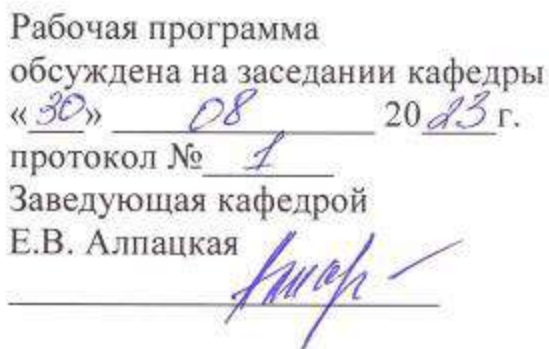 Рабочая программа
обсуждена на заседании кафедры
«30» 08 2023 г.
протокол № 1
Заведующая кафедрой
Е.В. Алпацкая